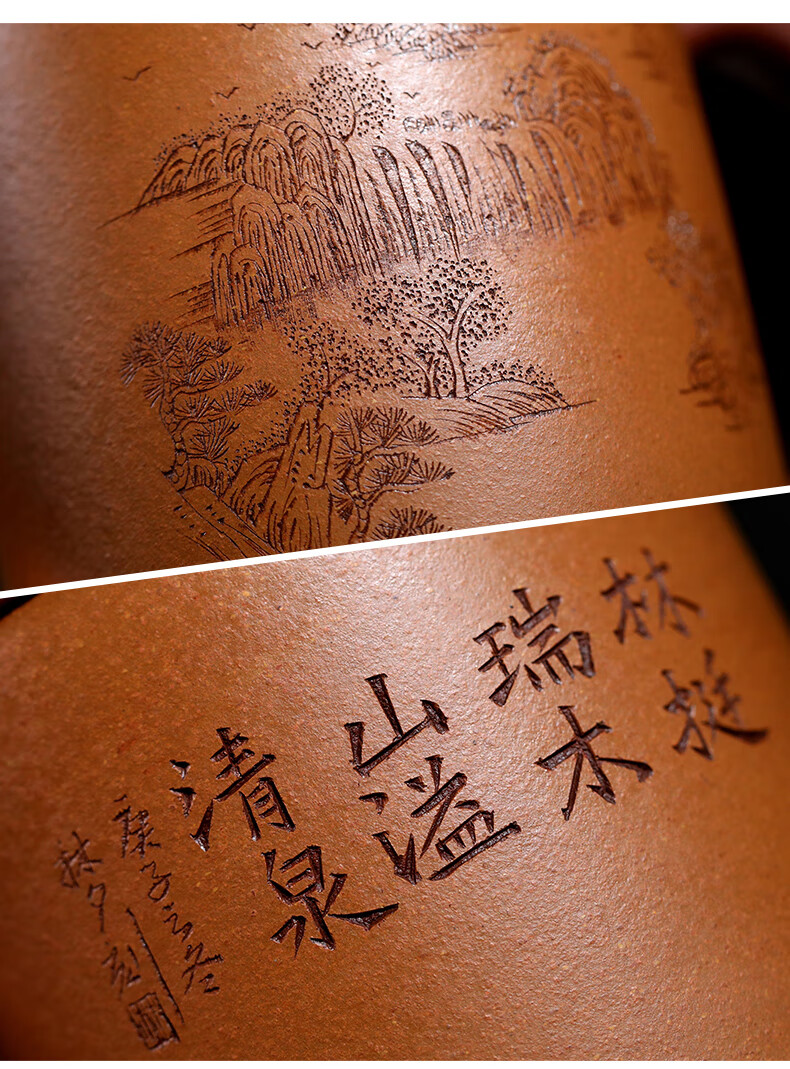 林挺
瑞木
山溢
清泉
庚子之冬
林夕刻